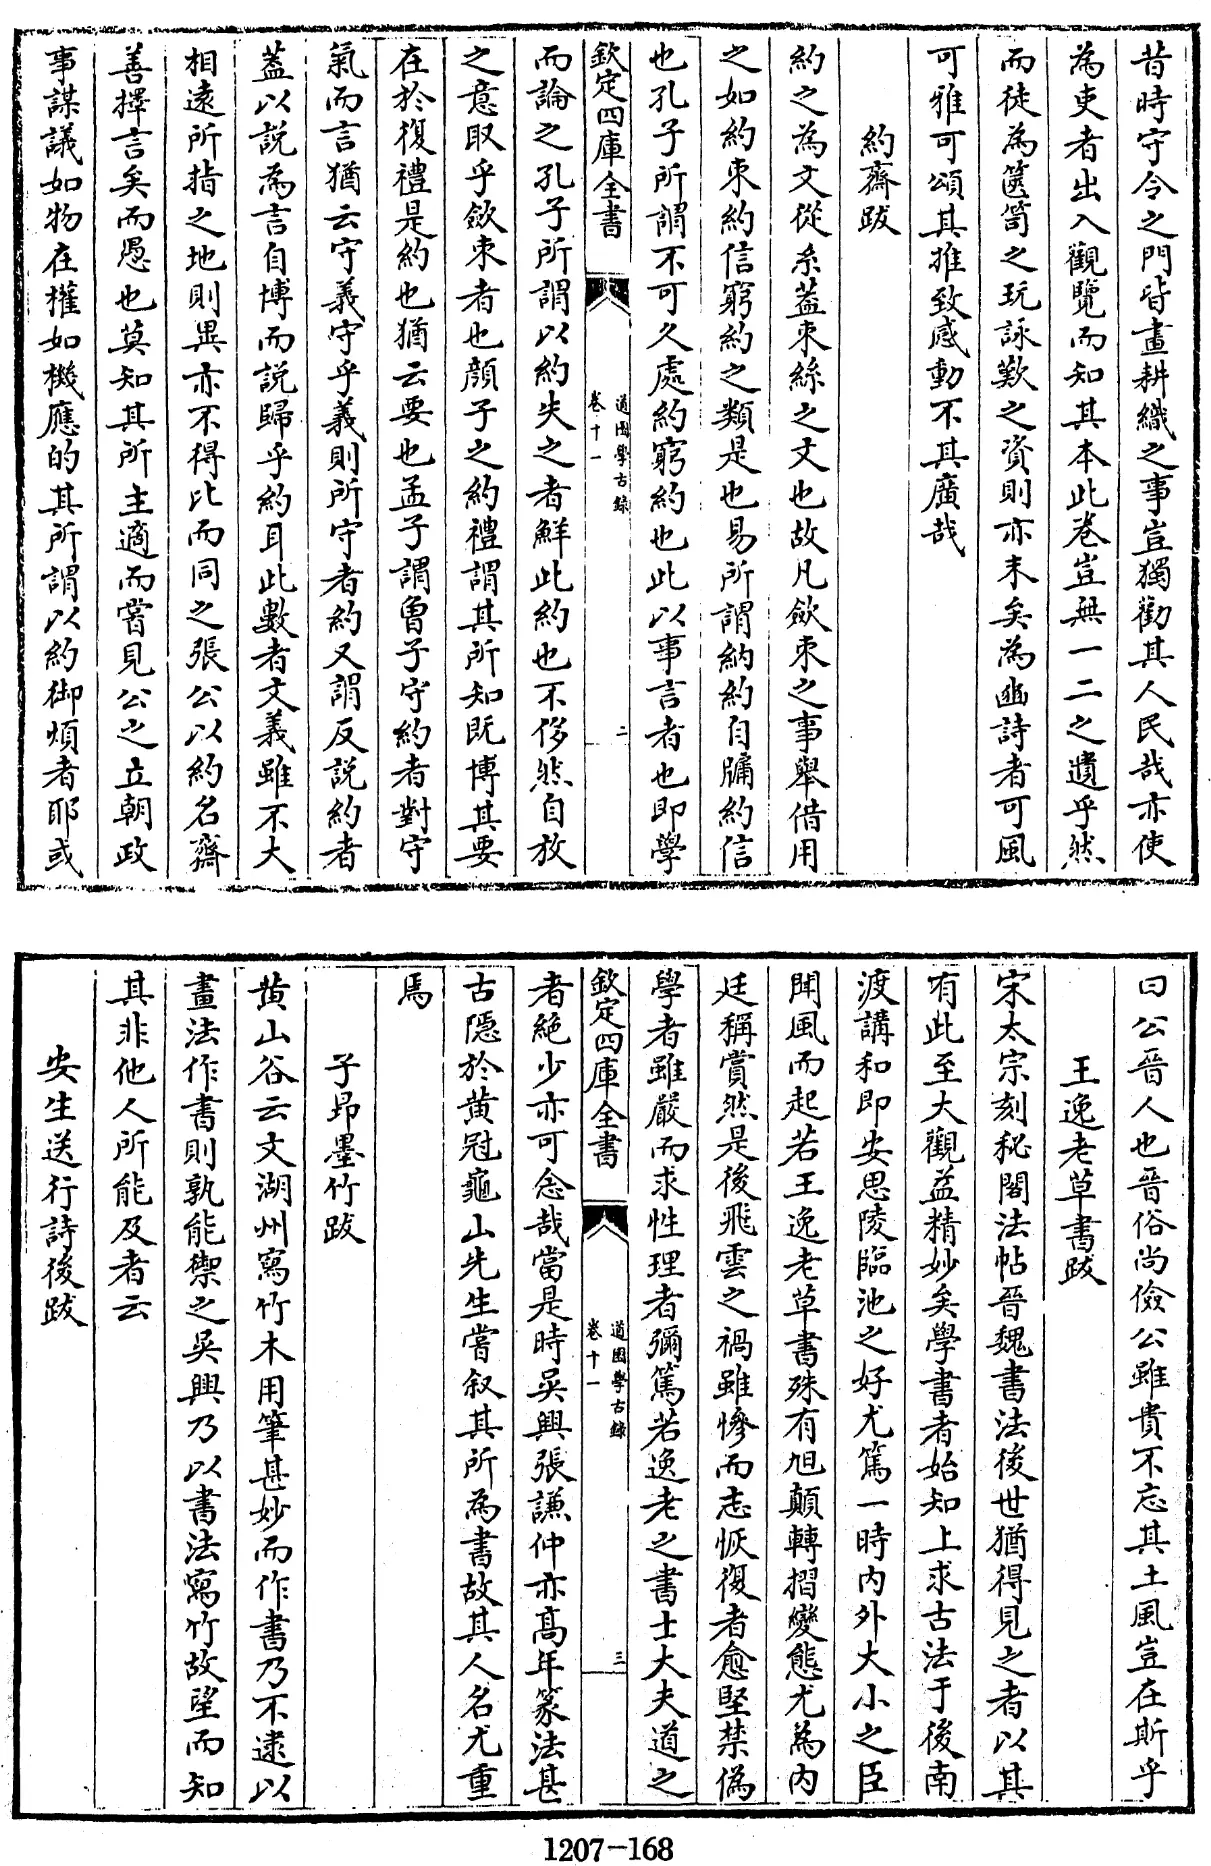 昔時守令之門皆畫耕織之事豈獨勸其人民哉亦使
為吏者出入觀覽而知其本此卷豈無一二之遺乎然
而徒為篋笥之玩詠歎之資則亦末矣為豳詩者可風
可雅可頌其推致感動不其廣哉
約齋跋
約之為文從糸葢束絲之文也故凡斂束之事舉借用
之如約束約信窮約之類是也易所謂納約自牖約信
也孔子所謂不可久處約窮約也此以事言者也即學
欽定四庫全書
道園學古錄
卷十一
二
而論之孔子所謂以約失之者鮮此約也不侈然自放
之意取乎斂束者也顔子之約禮謂其所知既博其要
在於復禮是約也猶云要也孟子謂曾子守約者對守
氣而言猶云守義守乎義則所守者約又謂反説約者
葢以説為言自博而説歸乎約耳此數者文義雖不大
相遠所指之地則異亦不得比而同之張公以約名齋
善擇言矣而愚也莫知其所主適而嘗見公之立朝政
事謀議如物在權如機應的其所謂以約御煩者耶或
曰公晉人也晉俗尚儉公雖貴不忘其土風豈在斯乎
王逸老草書跋
宋太宗刻秘閣法帖晉魏書法後世猶得見之者以其
有此至大觀益精妙矣學書者始知上求古法于後南
渡講和即安思陵臨池之好尤篤一時内外大小之臣
聞風而起若王逸老草書殊有旭顛轉摺變態尤為内
廷稱賞然是後飛雲之禍雖慘而志恢復者愈堅禁偽
學者雖嚴而求性理者彌篤若逸老之書士大夫道之
欽定四庫全書
道園學古錄
卷十一
三
者絶少亦可念哉當是時吳興張謙仲亦髙年篆法甚
古隱於黄冠龜山先生嘗叙其所為書故其人名尤重
焉
子昂墨竹跋
黄山谷云文湖州寫竹木用筆甚妙而作書乃不逮以
畫法作書則孰能禦之吳興乃以書法寫竹故望而知
其非他人所能及者云
安生送行詩後跋
1207-168